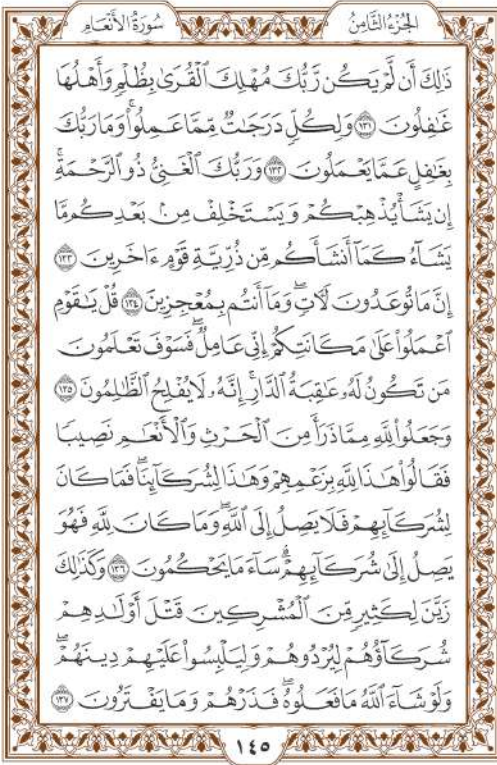 الجُزْءُ الثَّامِنُ سُورَةُ الأَنْعَامِ
ذَٰلِكَ أَن لَّمْ يَكُن رَّبُّكَ مُهْلِكَ ٱلْقُرَىٰ بِظُلْمٍ وَأَهْلُهَا
غَٰفِلُونَ ١٣١ وَلِكُلٍّ دَرَجَٰتٌ مِّمَّا عَمِلُوا۟ۚ وَمَا رَبُّكَ
بِغَٰفِلٍ عَمَّا يَعْمَلُونَ ١٣٢ وَرَبُّكَ ٱلْغَنِىُّ ذُو ٱلرَّحْمَةِۚ
إِن يَشَأْ يُذْهِبْكُمْ وَيَسْتَخْلِفْ مِنۢ بَعْدِكُم مَّا
يَشَآءُ كَمَآ أَنشَأَكُم مِّن ذُرِّيَّةِ قَوْمٍ ءَاخَرِينَ ١٣٣
إِنَّ مَا تُوعَدُونَ لَءَاتٍۖ وَمَآ أَنتُم بِمُعْجِزِينَ ١٣٤ قُلْ يَٰقَوْمِ
ٱعْمَلُوا۟ عَلَىٰ مَكَانَتِكُمْ إِنِّى عَامِلٌۖ فَسَوْفَ تَعْلَمُونَ
مَن تَكُونُ لَهُۥ عَٰقِبَةُ ٱلدَّارِۚ إِنَّهُۥ لَا يُفْلِحُ ٱلظَّٰلِمُونَ ١٣٥
وَجَعَلُوا۟ لِلَّهِ مِمَّا ذَرَأَ مِنَ ٱلْحَرْثِ وَٱلْأَنْعَٰمِ نَصِيبًا
فَقَالُوا۟ هَٰذَا لِلَّهِ بِزَعْمِهِمْ وَهَٰذَا لِشُرَكَآئِنَاۖ فَمَا كَانَ
لِشُرَكَآئِهِمْ فَلَا يَصِلُ إِلَى ٱللَّهِۖ وَمَا كَانَ لِلَّهِ فَهُوَ
يَصِلُ إِلَىٰ شُرَكَآئِهِمْۗ سَآءَ مَا يَحْكُمُونَ ١٣٦ وَكَذَٰلِكَ
زَيَّنَ لِكَثِيرٍ مِّنَ ٱلْمُشْرِكِينَ قَتْلَ أَوْلَٰدِهِمْ
شُرَكَآؤُهُمْ لِيُرْدُوهُمْ وَلِيَلْبِسُوا۟ عَلَيْهِمْ دِينَهُمْۖ
وَلَوْ شَآءَ ٱللَّهُ مَا فَعَلُوهُۖ فَذَرْهُمْ وَمَا يَفْتَرُونَ ١٣٧
١٤٥